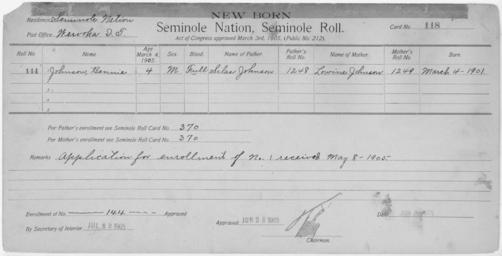 NEW BORN
Residence Seminole Nation
Seminole Nation, Seminole Roll.
Card No. 118
Post Office. Wewoka I.T.
Act of Congress approved March 3rd, 1905, (Public No. 212).
Roll No. Name Age March 4, 1905. Sex Blood Name of Father. Father's Roll No. Name of Mother. Mother's Roll No. Born
144 Johnson, Bennie 4 M Full Silas Johnson 1248 Lowine Johnson 1249 March 4-1901
For Father's enrollment see Seminole Roll Card No. 370
For Mother's enrollment see Seminole Roll Card No. 370
Remarks Application for enrollment of No. 1 received May 8-1905
Enrollment of No. 144 Approved
Approved 1905
Date
By Secretary of Interior JUL 1905
Chairman.